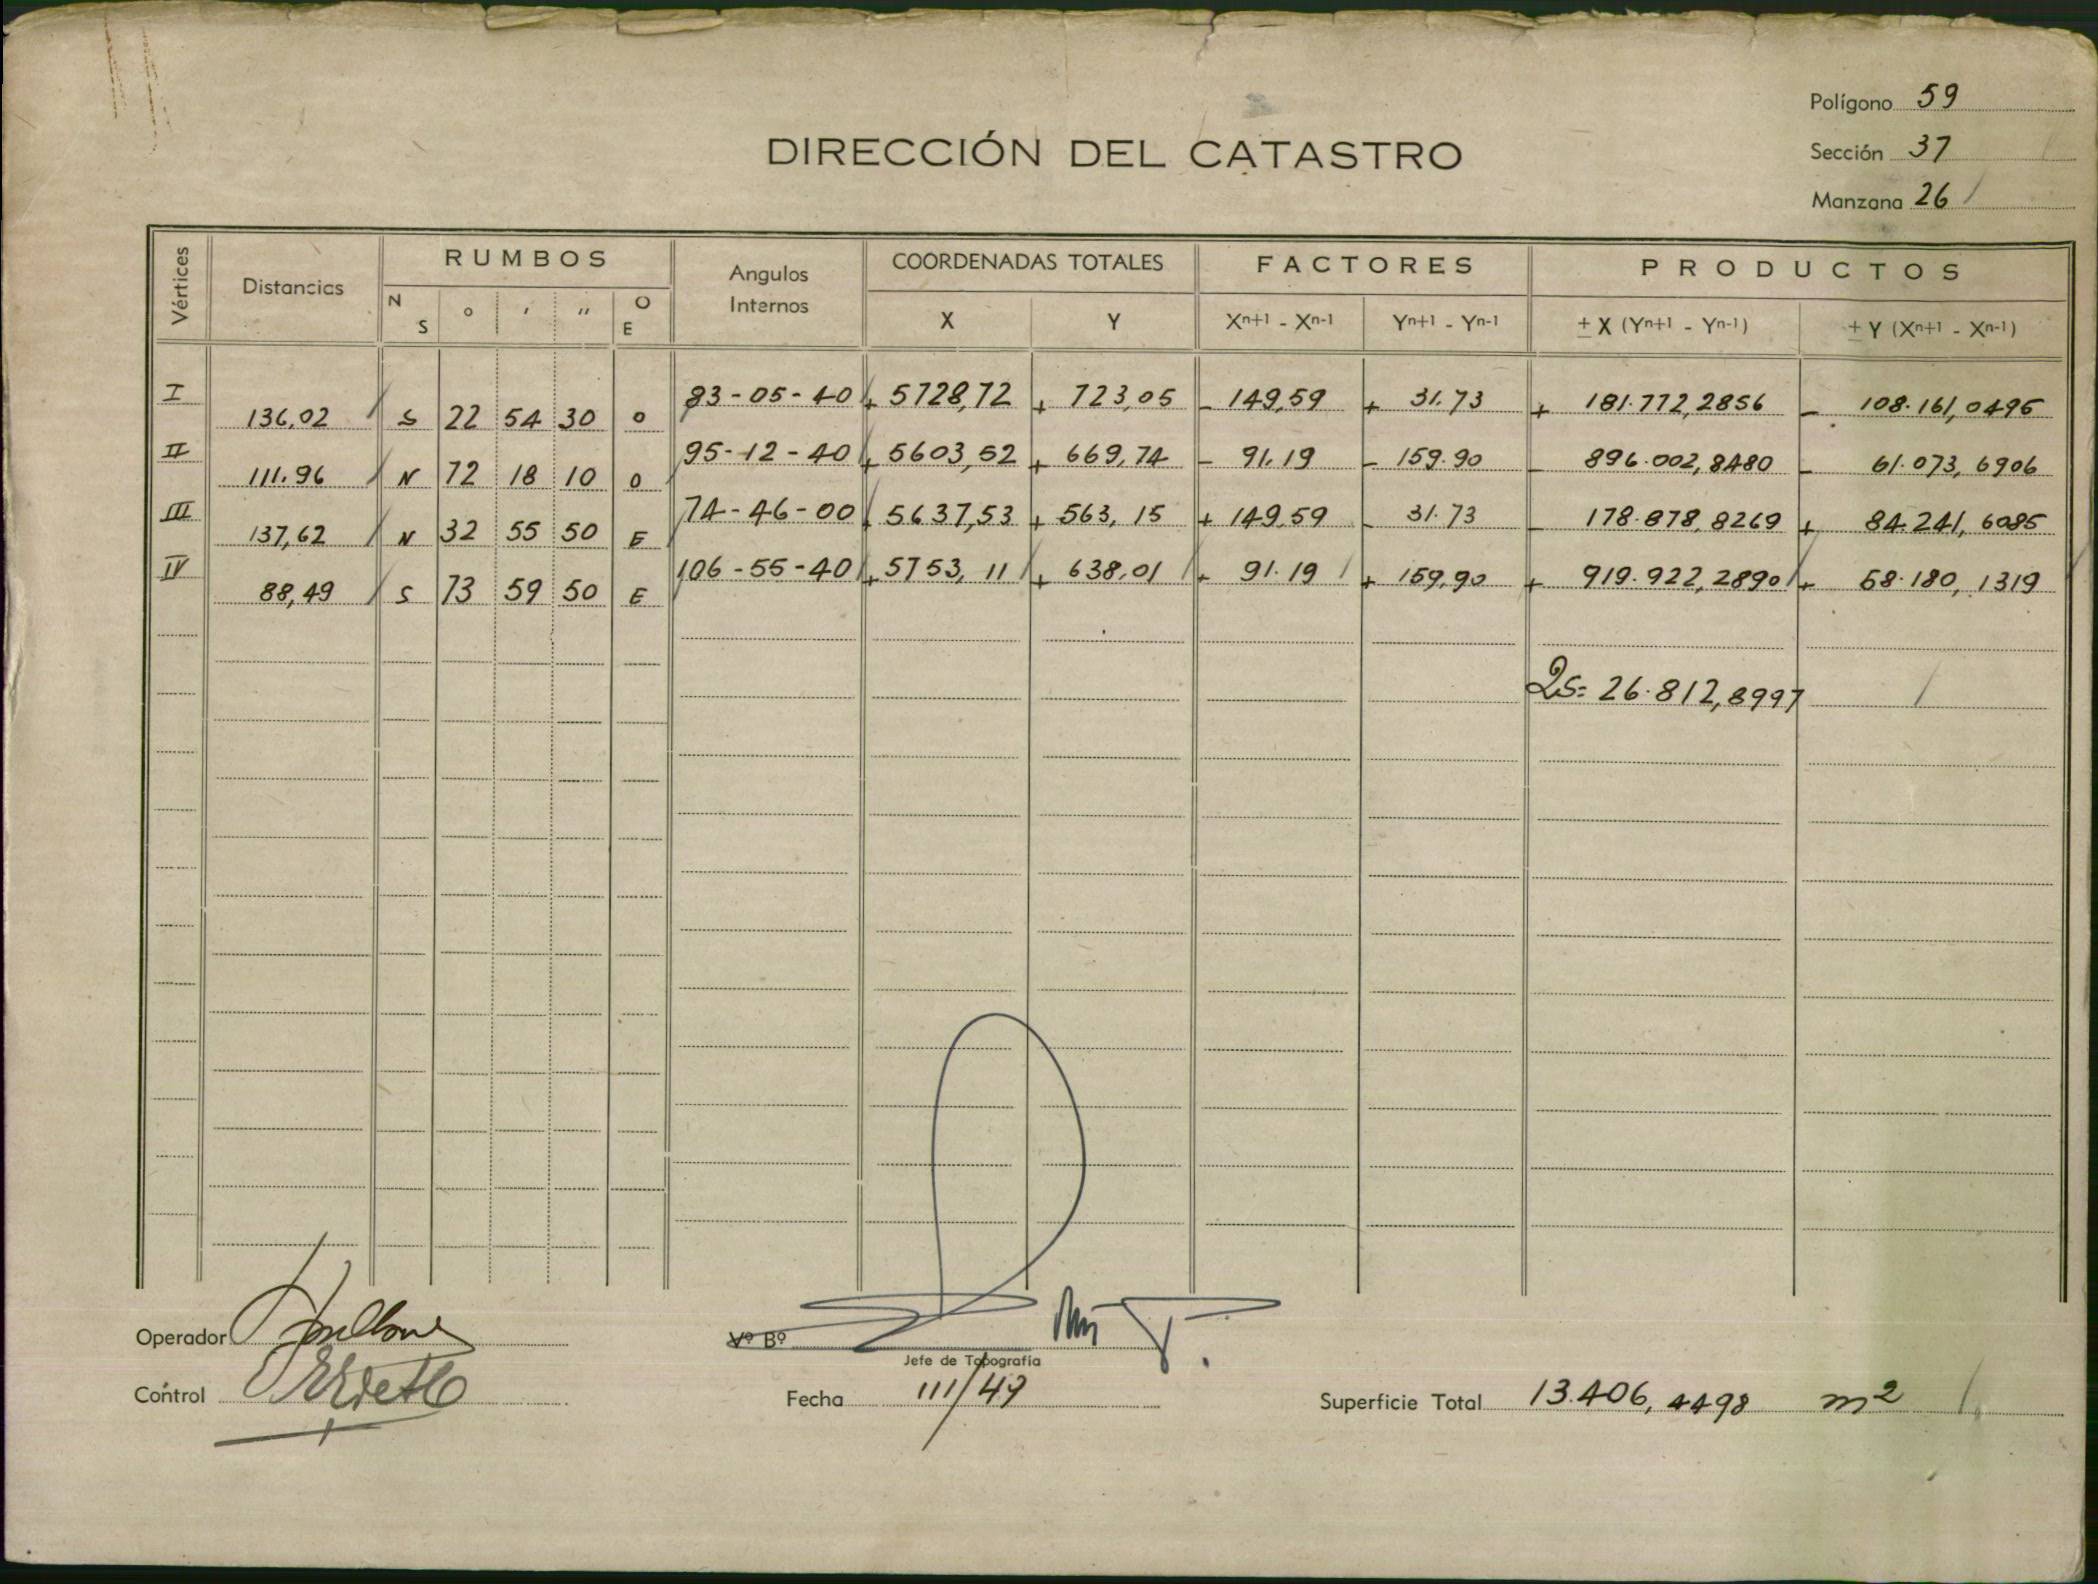 Polígono 59
DIRECCIÓN DEL CATASTRO
Sección 37
Manzana 26
Vértices Distancias RUMBOS Angulos Internos COORDENADAS TOTALES FACTORES PRODUCTOS
N S ° ' '' O E X Y Xn+1 - Xn-1 Yn+1 - Yn-1 ± X (Yn+1 - Yn-1) ± Y (Xn+1 - Xn-1)
I 83-05-40 + 5728,72 + 723,05 - 149,59 + 31.73 + 181.772,2856 - 108.161,0495
136,02 S 22 54 30 O
II 95-12-40 + 5603,52 + 669,74 - 91.19 - 159.90 - 896.002,8480 - 61.073,6906
111.96 N 72 18 10 O
III 74-46-00 + 5637,53 + 563,15 + 149.59 - 31.73 - 178.878,8269 + 84.241,6085
137,62 N 32 55 50 E
IV 106-55-40 + 5753,11 + 638,01 + 91.19 + 159,90 + 919.922,2890 + 58.180,1319
88,49 S 73 59 50 E
2S= 26.812,8997
Operador
Vº Bº
Jefe de Topografía
Control
Fecha III/49
Superficie Total 13.406,4498 m2